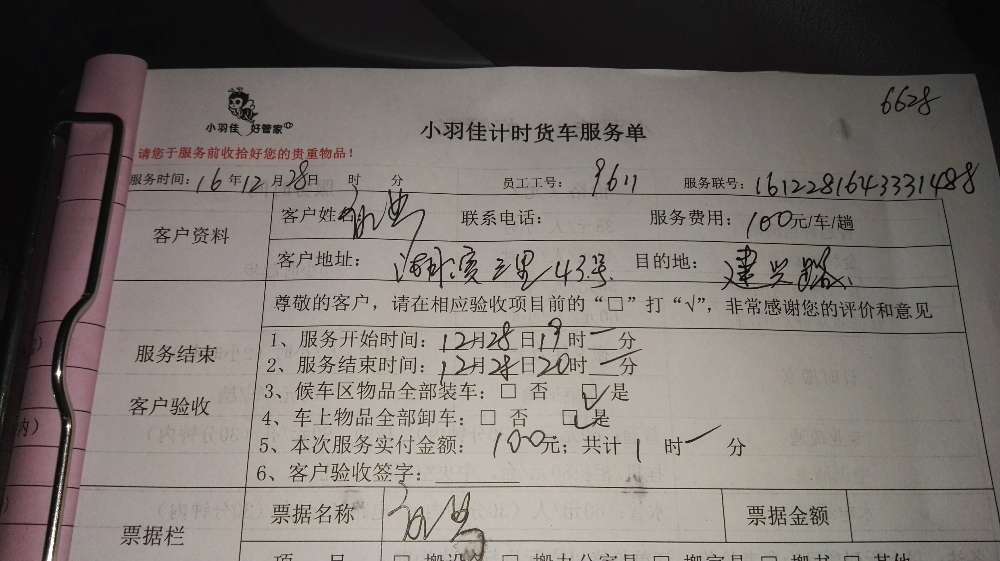 6628
小羽佳 好管家
小羽佳计时货车服务单
请您于服务前收拾好您的贵重物品！
服务时间：16年12月28日 时 分 员工工号：9611 服务联号：1612281643331488
客户资料
客户姓名 联系电话： 服务费用：100元/车/趟
客户地址：湖滨三里43号 目的地：建兴路
尊敬的客户，请在相应验收项目前的“□”打“√”，非常感谢您的评价和意见
服务结束
客户验收
1、服务开始时间：12月28日19时一分
2、服务结束时间：12月28日20时一分
3、候车区物品全部装车：□ 否 □√是
4、车上物品全部卸车：□ 否 □√是
5、本次服务实付金额：100元；共计1时一分
6、客户验收签字：
票据栏
票据名称 票据金额
项 目 □ 搬设备 □ 搬办公家具 □ 搬家具 □ 搬书 □ 其他